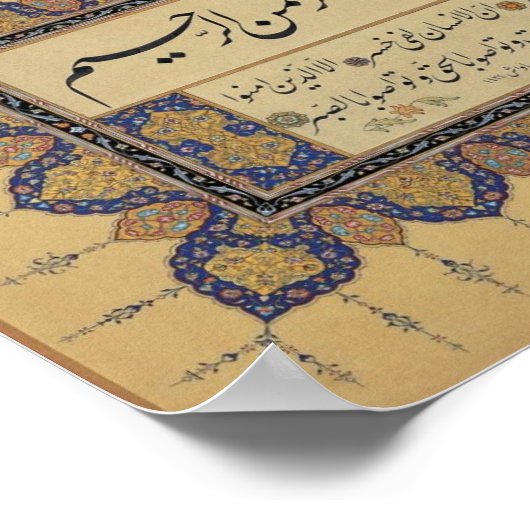 الرَّحيم
ان الانسان لفى خسر الا الذين امنوا
و توصوا بالحق و توصوا بالصبر